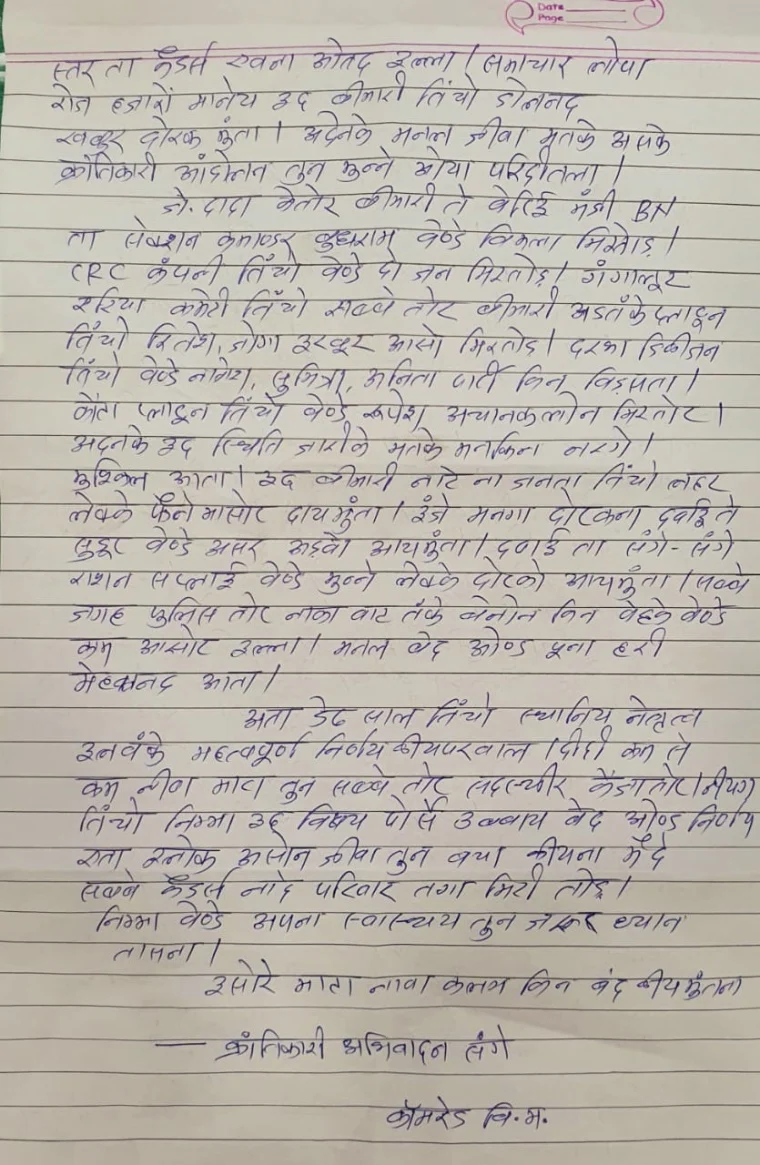 Date
Page
स्तर ता कैडर्स रवना ओतद इल्ला। समाचार लोपा
रोज हजारों मानेय इद बीमारी तिंचो डोलनद
खबूर दोरक मुंता। अदेनके मनल जीवा मतके अपके
क्रांतिकारी आंदोलन तुन मुन्ने ओया परिदीतला।
जे. दादा केतोर बीमारी ते बेटिई मंजी BN
ता सेक्शन कमाण्डर बुधराम वेण्डे विमला मिरतोड़।
CRC कंपनी तिंचो वेण्डे दो जन मिरतोड़। गंगालूर
एरिया कमेटी तिंचो सब्बे तोर बीमारी अडतंके प्लाटून
तिंचो रितेश, जोगा इरवूर आसो मिरतोड़। दरभा डिवीजन
तिंचो वेण्डे नागेश, सुमित्रा, अनिता पार्टी किन विडसता।
केता प्लाटून तिंचो वेण्डे रूपेश अचानक लोन मिरतोर।
अदनके इद स्थिति जारीके मतके मनकिना नरगे।
मुश्किल आता। इद बीमारी नाटे ना जनता तिंचो लहर
लेवके फैने मासोर दायमुंता। इंजे मनगा दोरकना दवाई ते
सुदूर वेण्डे असर अडवो आयमुंता। दवाई ता संगे-संगे
राशन सप्लाई वेण्डे मुन्ने लेवके दोरको आयमुंता। सब्बे
जगह पुलिस तोर नाका वाट तंके बेनोन किन वेहके वेण्डे
कम आसोर इल्ला। मनल बेद ओण्ड पूना हरी
मेहकनद आता।
अता डेढ साल तिंचो स्थानिय नेतृत्व
इनवंके महत्वपूर्ण निर्णय कीयपरवाल। दीदी कम से
कम नीवा माटा तुन सब्बे तोर सदस्यीर केंजातोर। नीयग
तिंचो निम्मा इद विषय पोर्से उव्वाय बेद ओण्ड निर्णय
एता इलोक असोन जीवा तुन बचा कीयना मेंदे
सब्बे कैडर्स नाटे परिवार तगा मिरी तोड़।
निम्मा वेण्डे अपना स्वास्थ्य तुन जरूर ध्यान
तासना।
इसोरे माटा नावा कलम किन बंद कीयमुंतना
— क्रांतिकारी अभिवादन संगे
कॉमरेड वि.म.